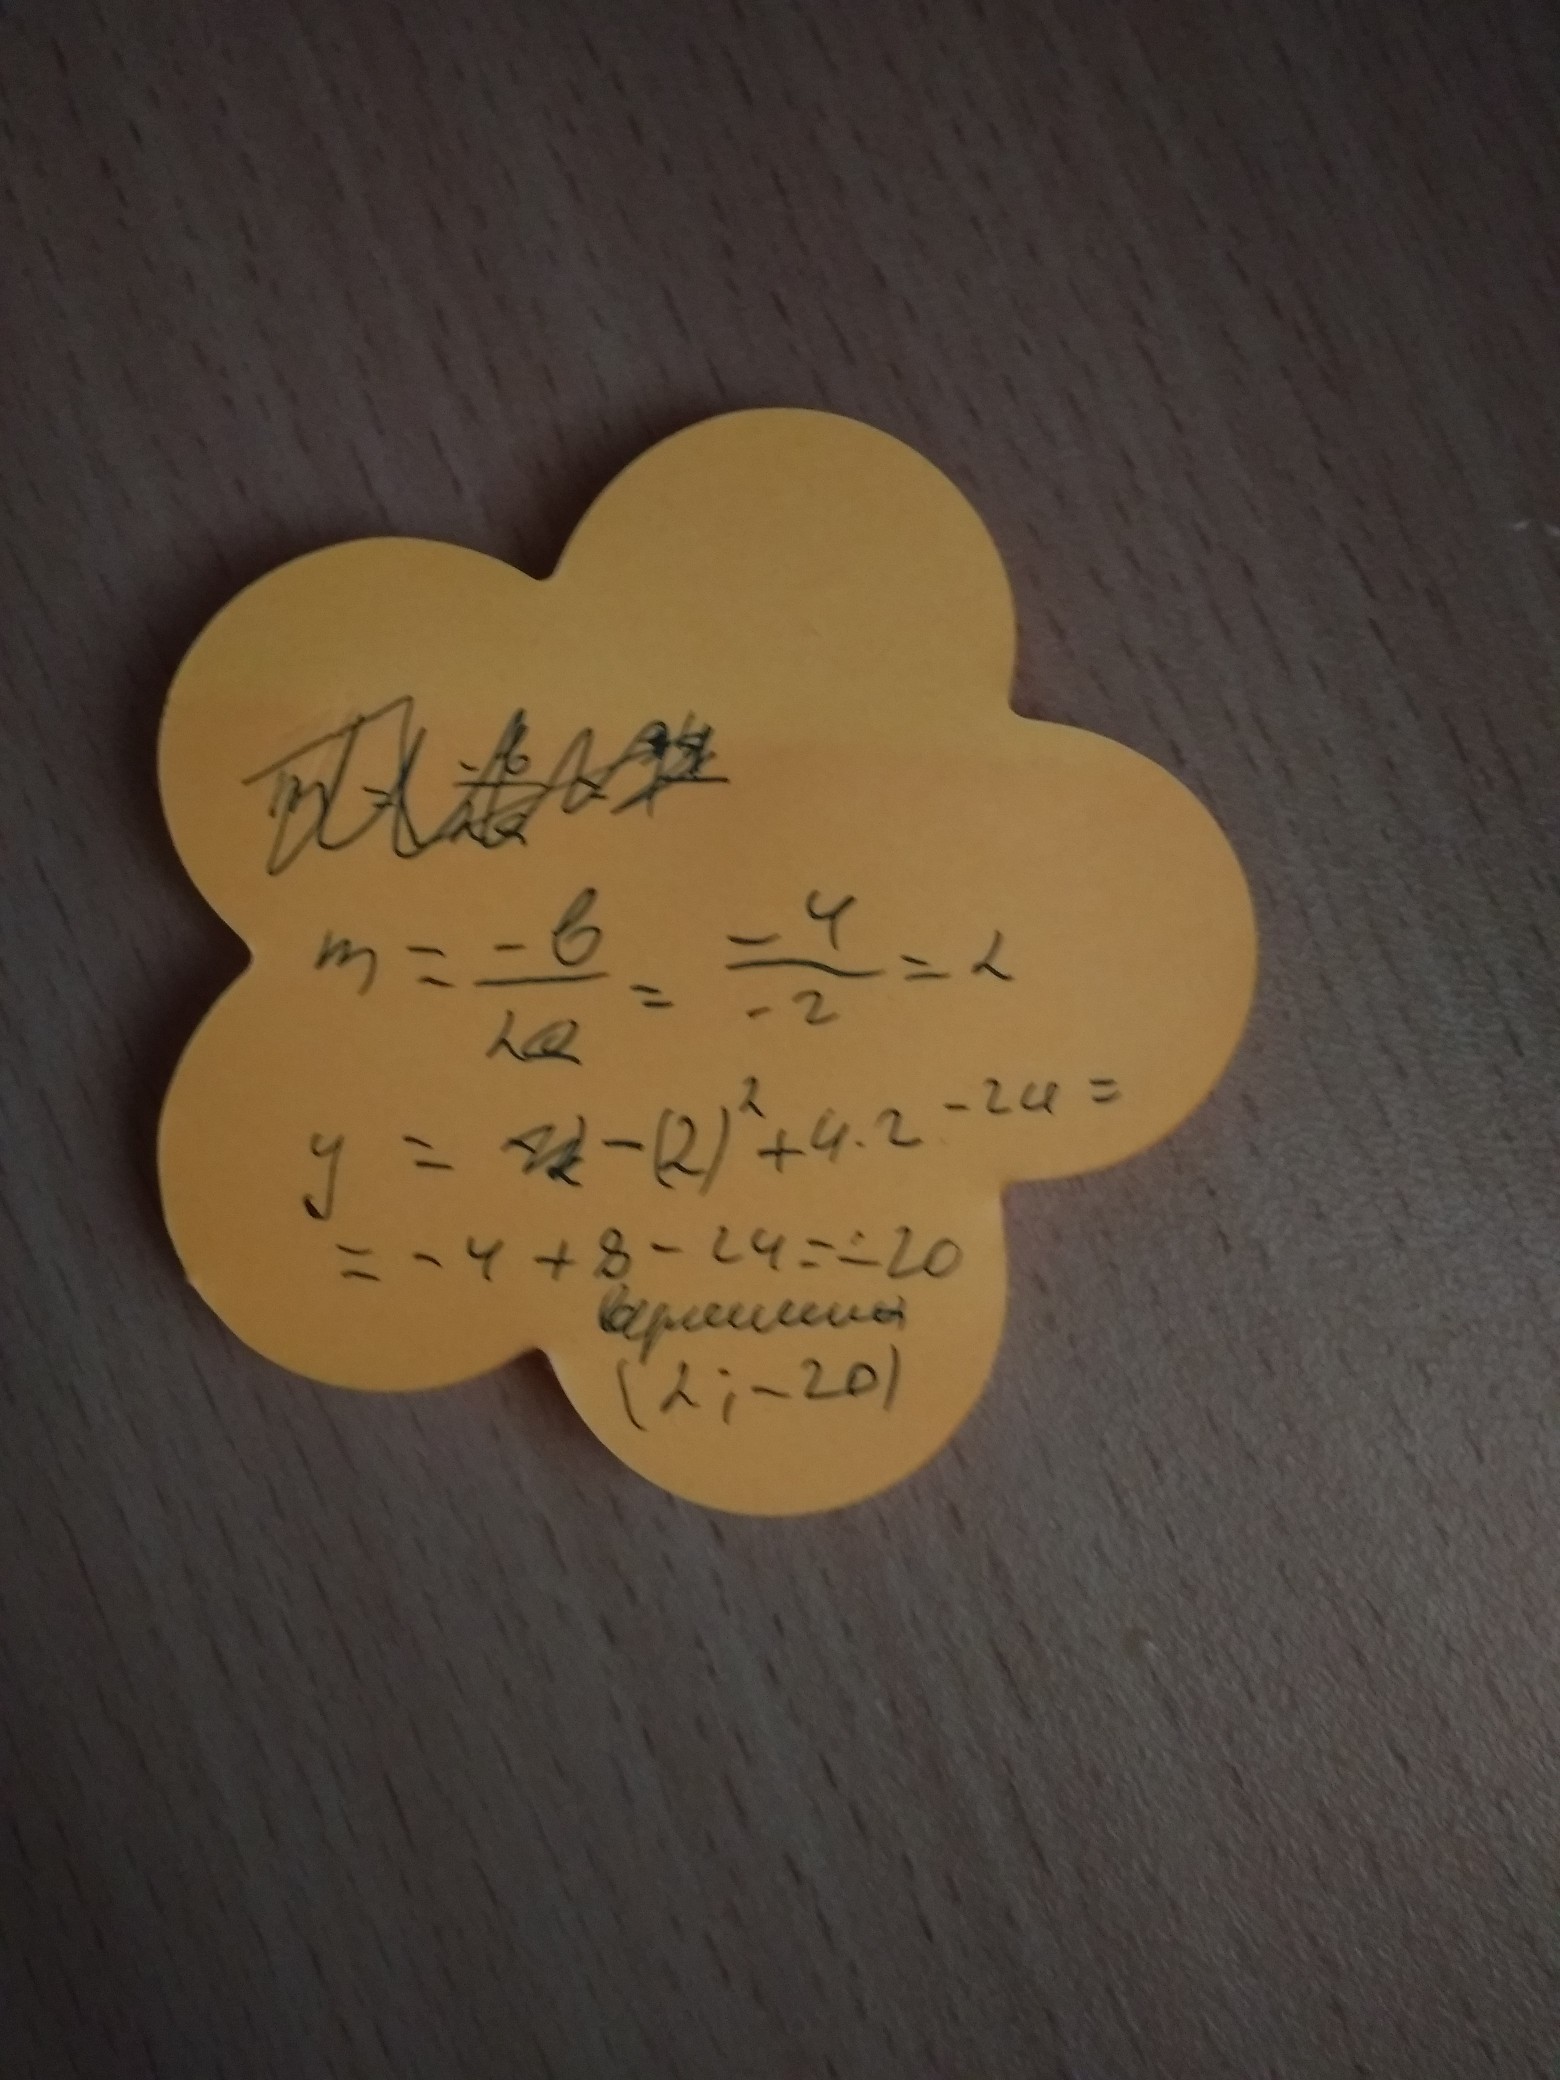 m = -b/2a = -4/-2 = 2
y = -(2)²+4·2-24=
=-4+8-24=-20
вершина
(2;-20)